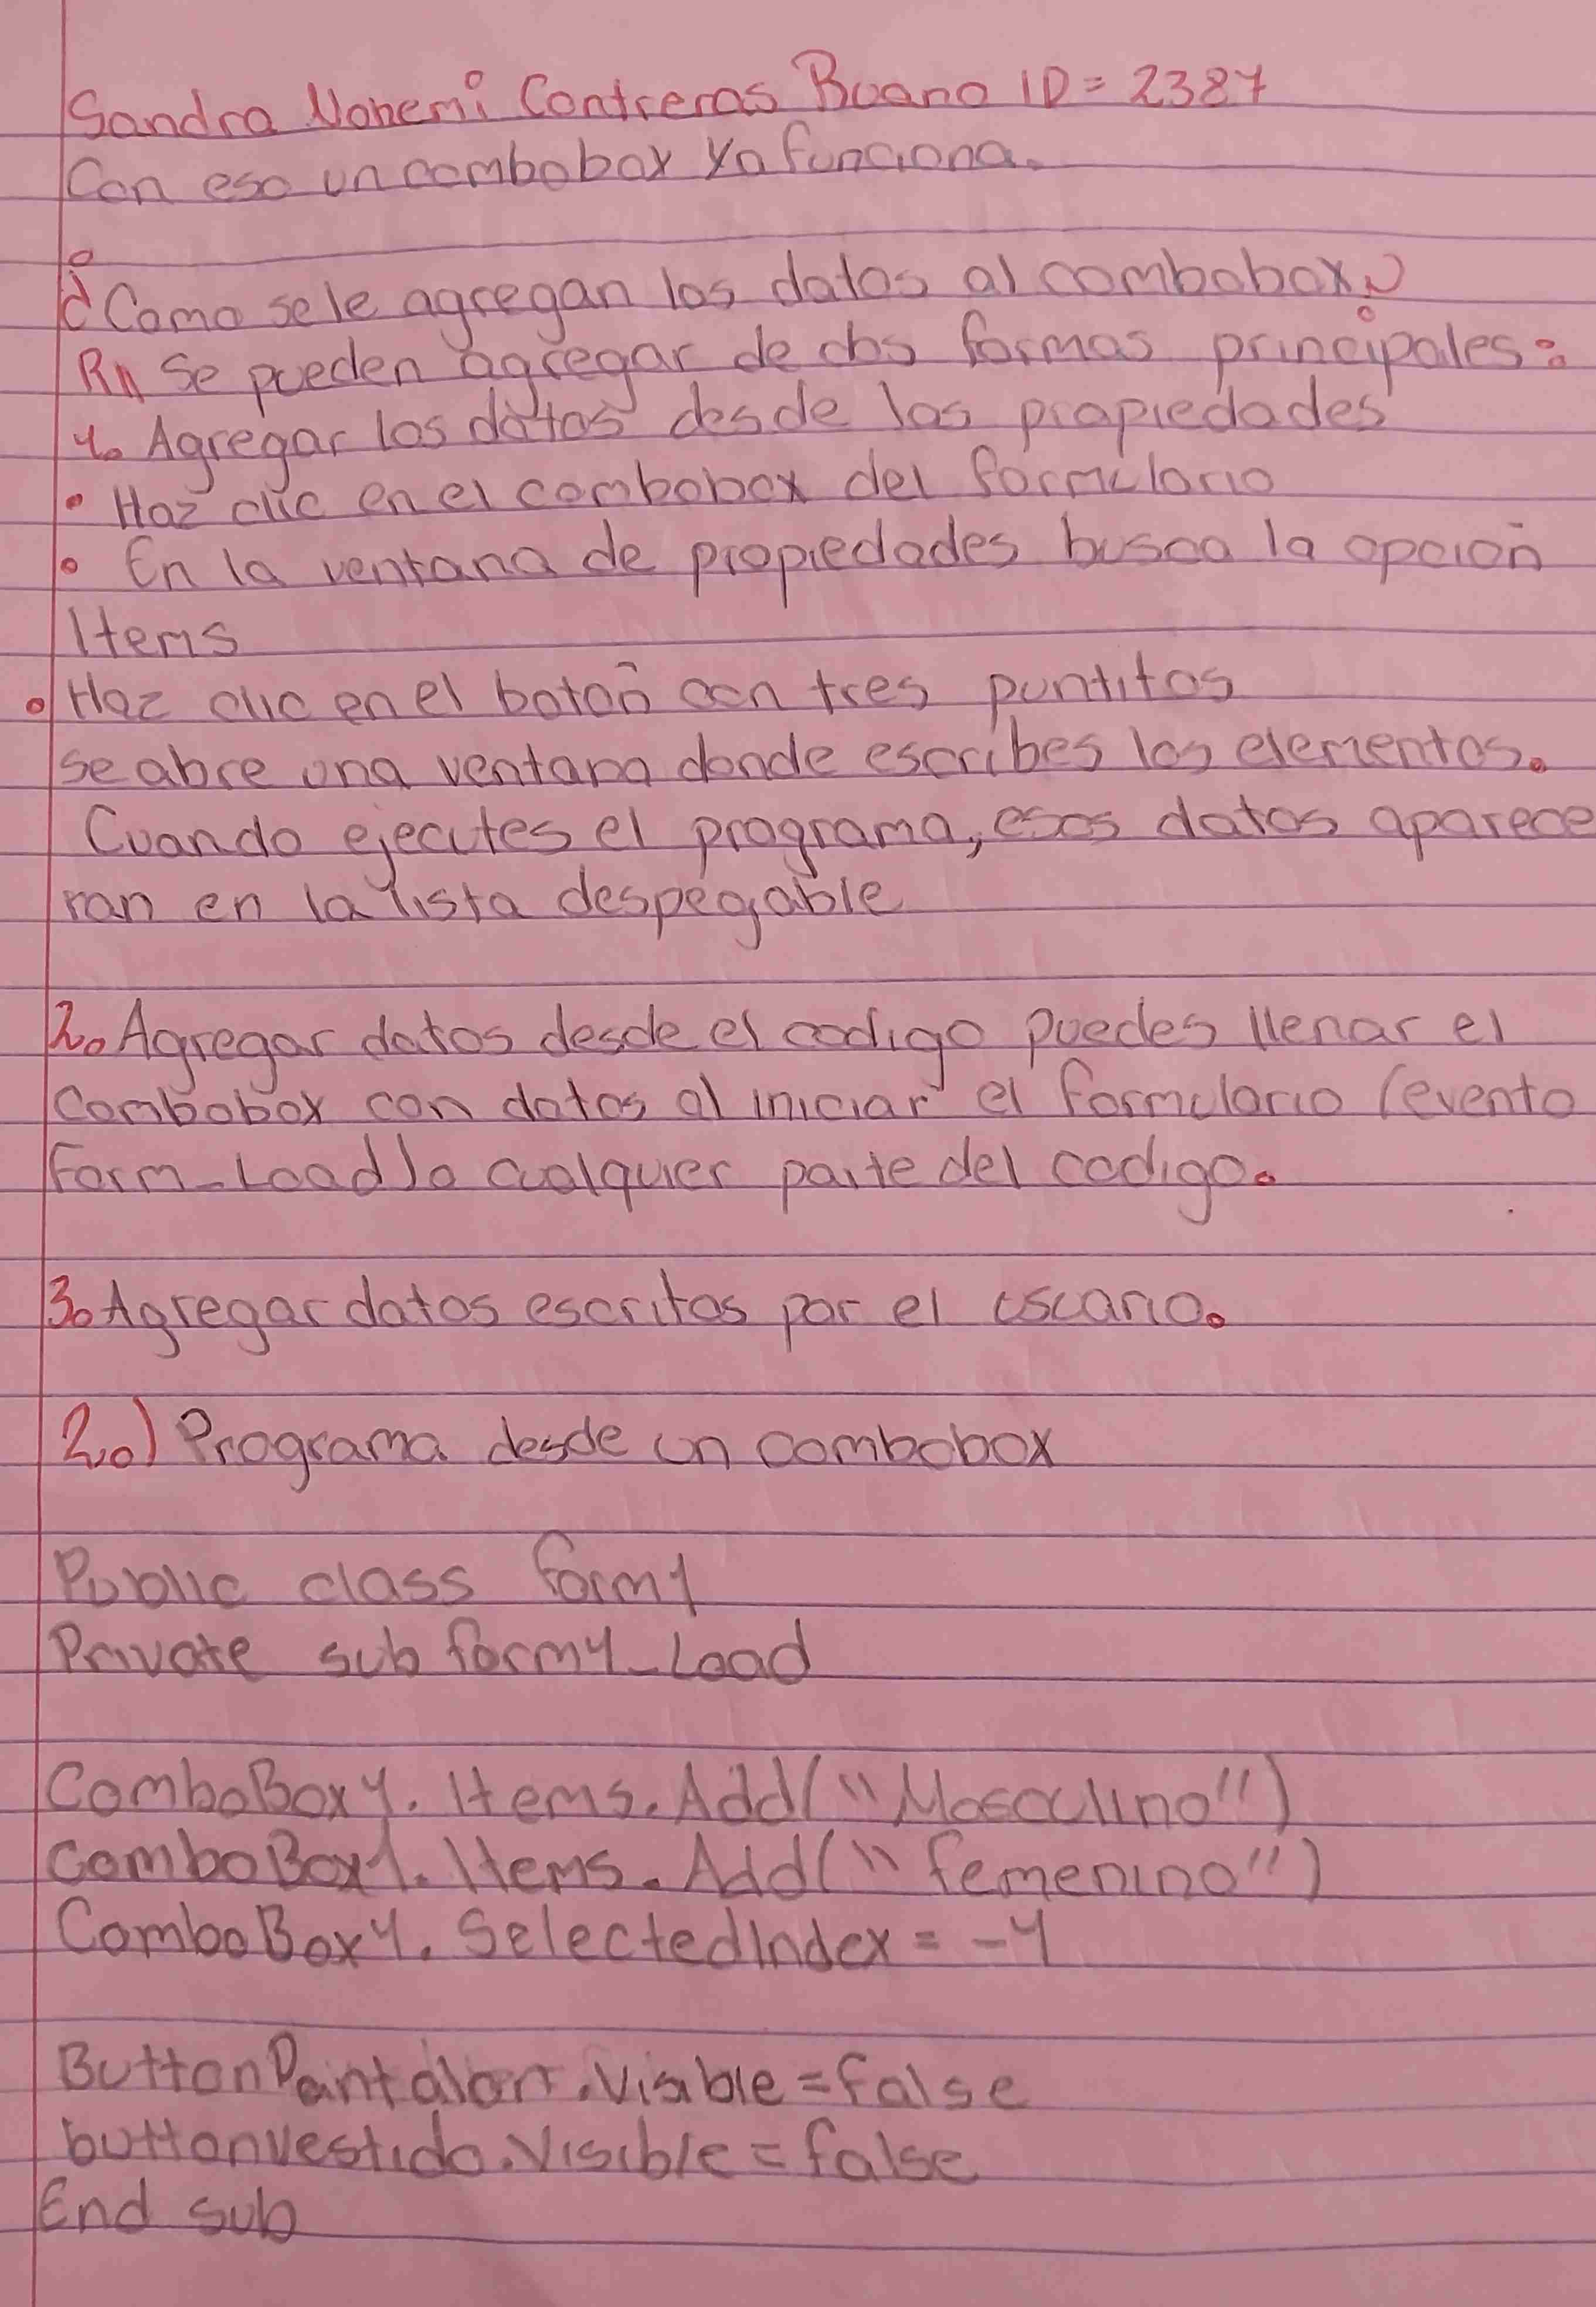 Sandra Nohemi Contreras Bueno ID = 2387
Con eso un combobox ya funciona.
¿Como se le agregan los datos al combobox?
R// Se pueden agregar de dos formas principales:
1. Agregar los datos desde las propiedades
• Haz clic en el combobox del formulario
• En la ventana de propiedades busca la opción
Items
• Haz clic en el botón con tres puntitos
se abre una ventana donde escribes los elementos.
Cuando ejecutes el programa, esos datos aparece
ran en la lista despegable
2. Agregar datos desde el codigo puedes llenar el
Combobox con datos al iniciar el formulario (evento
Form_Load) o cualquier parte del codigo.
3. Agregar datos escritos por el usuario.
2.) Programa desde un combobox
Public class form1
Private sub form1_Load
ComboBox1.Items.Add("Masculino")
ComboBox1.Items.Add("femenino")
ComboBox1.SelectedIndex = -1
ButtonPantalon.Visible = false
buttonvestido.Visible = false
End sub